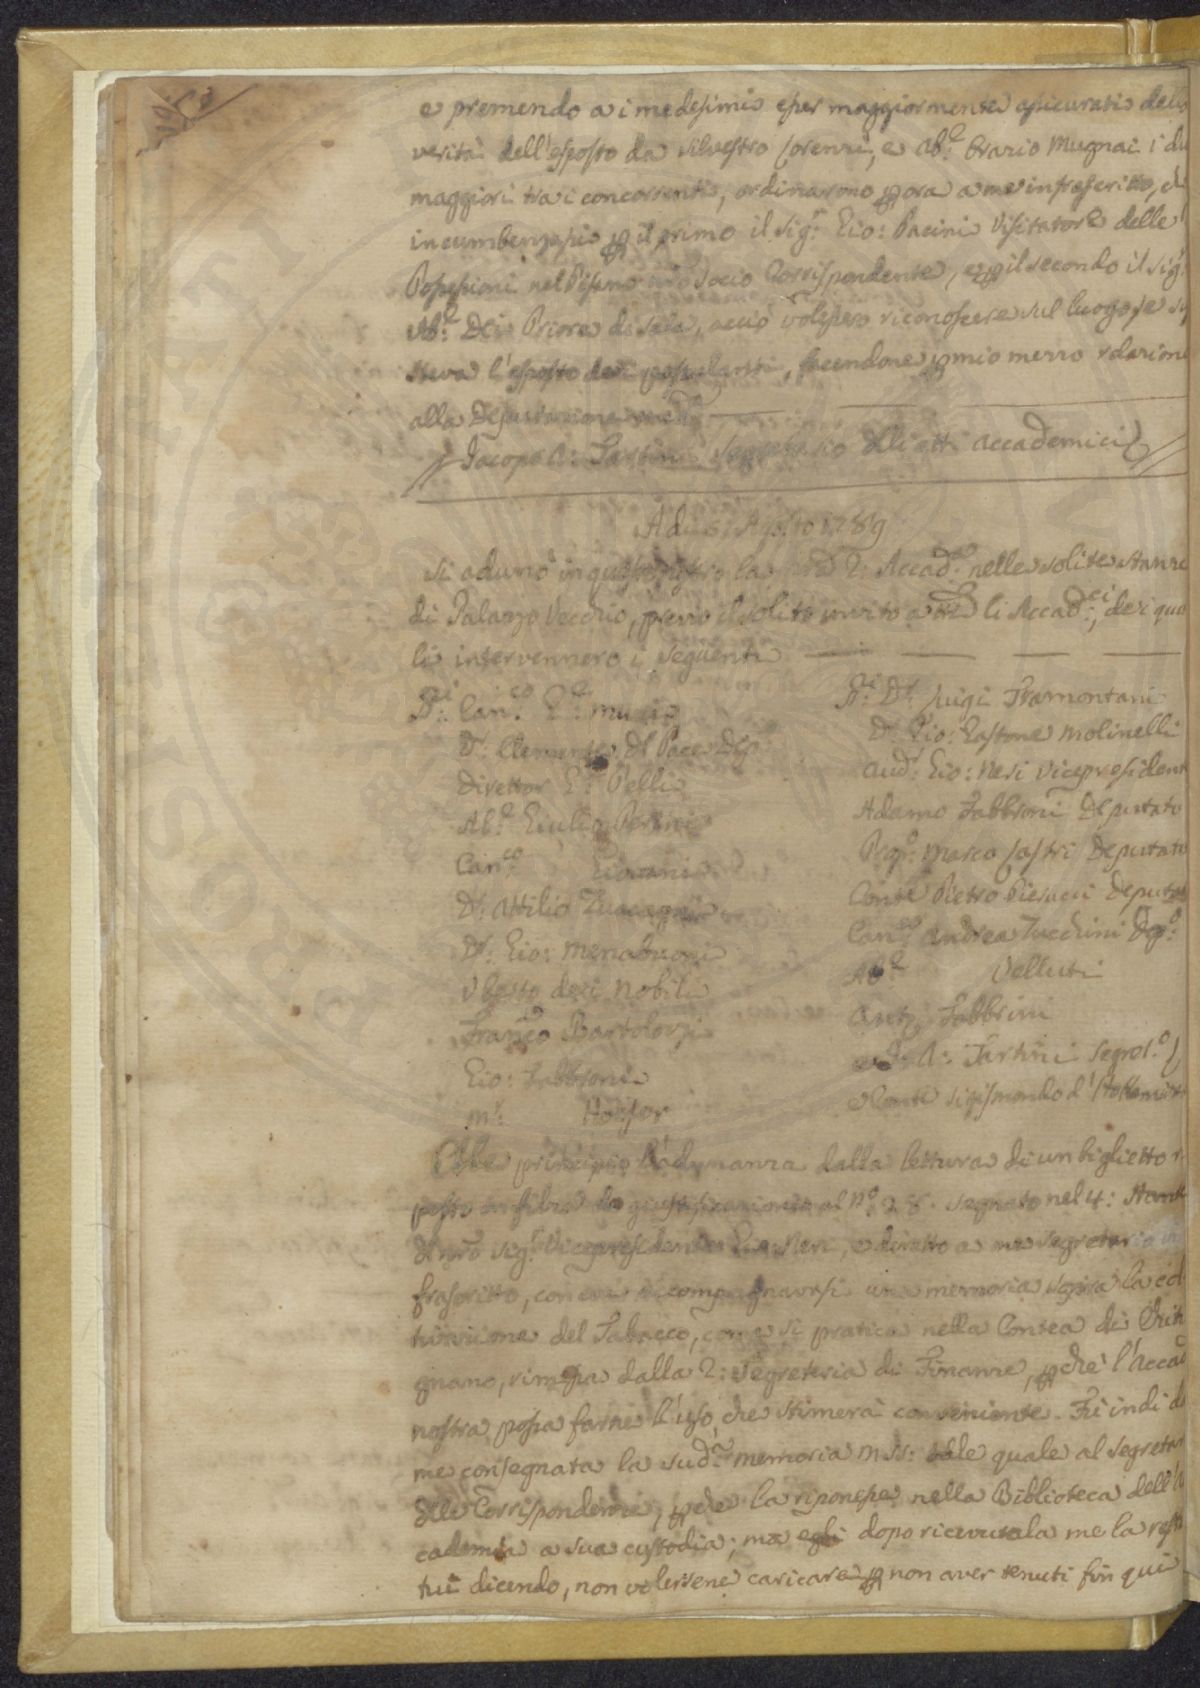 e premendo a i medesimi esser maggiormente assicurati della
verità dell'esposto da Silvestro Lorenzi, e Ab.e Orazio Mugnai i du
maggiori tra i concorrenti, ordinarono per ora a me infrascritto, di
incumbenzare per il primo il Sig.r Gio: Pacini Visitatore delle
Possessioni nel Pisano nro Socio Corrispondente, e per il secondo il Sig.
Ab.e Dei Priore di, acciò volessero riconoscere sul luogo, se su
steva l'esposto dei postulanti, facendone per mio mezzo relazione
alla Deputazione
Jacopo A: Tartini Segretario delli atti Accademici
Adu Agosto 1789
Si adunò in questo giorno la R: Accad.a nelle solite stanze
di Palazzo Vecchio, previo il solito invito a tti li Accad.ci, dei qua
li intervennero i seguenti
SS.ri Can.co
D.r Clemente Del Pace Dep
Direttor Pelli
Ab.e Giulio Perini
Can.co
D.r Attilio Zuccagni
D.r Gio: Menabuoni
Uberto dei Nobili
Franco Bartolozzi
Gio: Fabbroni
M.r Hoefer
SS.ri D.r Luigi Tramontani
D.r Gio: Gastone Molinelli
Aud.r Gio: Neri Vicepresident
Adamo Fabbroni Deputato
Prop.o Marco Lastri Deputato
Conte Pietro Pierucci Deputat
Can.co Andrea Zucchini Dep.o
Ab.e Velluti
Ant.o Fabbrini
A: Tartini Segret.o
Conte Sigismondo
Ebbe principio l'adunanza dalla lettura di un biglietto r
posto in filza di giustificazioni al N.o 28. segnato nel 4: stant
di nro Sig.r Vicepresidente Gio: Neri, e diretto a me Segretario in
frascritto, con cui accompagnavasi una memoria sopra la col
tivazione del Tabacco, come si pratica nella Contea di Chiti
gnano, rimessa dalla R: Segreteria di Finanze, perchè l'Accad
nostra possa farne l'uso, che stimerà conveniente. Fù indi da
me consegnata la sud.a memoria mss: tale quale al Segretar
delle Corrispondenze, perchè la riponesse nella Biblioteca dell'A
cademia a sua custodia; ma egli dopo ricevutala me la resti
tuì dicendo, non volersene caricare per non aver tenuti fin qui